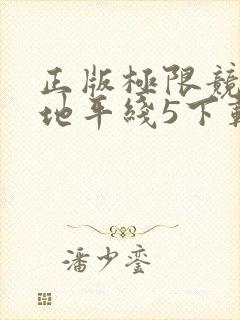 正版極限競
地平綫5下載
潘少鑾